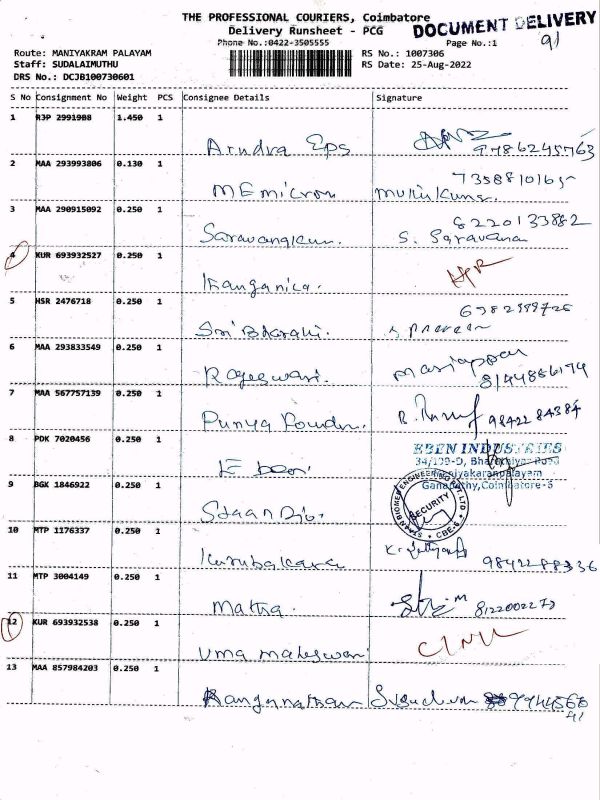 THE PROFESSIONAL COURIERS, Coimbatore
Delivery Runsheet - PCG
DOCUMENT DELIVERY
Phone No.:0422-3505555
Page No.:1
91
Route: MANIYAKRAM PALAYAM
RS No.: 1007306
Staff: SUDALAIMUTHU
RS Date: 25-Aug-2022
DRS No.: DCJB100730601
S No Consignment No Weight PCS Consignee Details Signature
1 RJP 2991908 1.450 1
Arudra Eps 9786245763
2 MAA 293993806 0.130 1
7358810165
MEmicron
3 MAA 290915092 0.250 1
8220133882
Saravanakum. S. Saravana
4 KUR 693932527 0.250 1
Kanganica.
5 HSR 2476718 0.250 1
Sri Bharathi.
6 MAA 293833549 0.250 1
Mariappan
Rageswari. 8144856174
7 MAA 567757139 0.250 1
Punya Powder. 98422 84384
8 PDK 7020456 0.250 1
EBEN INDUSTRIES
34/139-D, Bharathiyar Road
Maniyakaranpalayam
Eben
Ganapathy, Coimbatore-6
9 BGK 1846922 0.250 1
SECURITY
CBE-6
10 MTP 1176337 0.250 1
9842288336
11 MTP 3004149 0.250 1
Mathra. 8122002273
12 KUR 693932538 0.250 1
Uma maheswari
13 MAA 857984203 0.250 1
Ranganathan 99445660
41